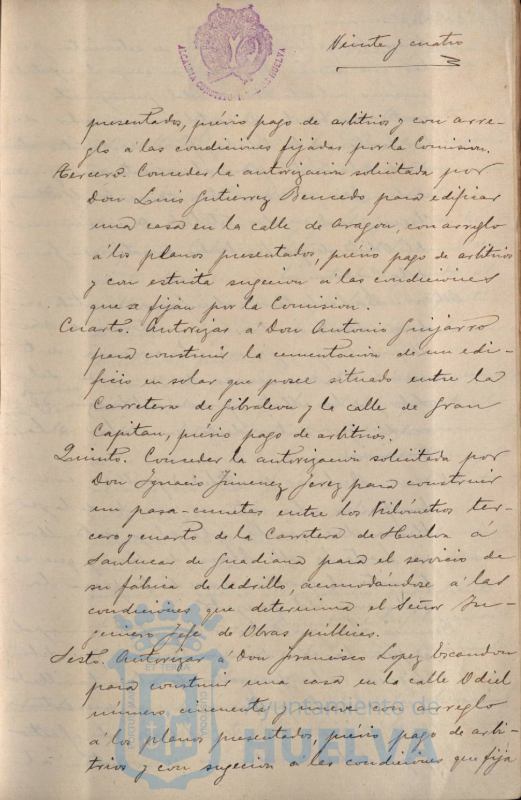 Veinte y cuatro
ALCALDIA CONSTITUCIONAL DE HUELVA
presentados, prévio pago de arbitrios y con arre-
glo á las condiciones fijadas por la Comision.
Tercero. Conceder la autorizacion solicitada por
Don Luis Gutierrez Bencedo para edificar
una casa en la calle de Aragon, con arreglo
á los planos presentados, prévio pago de arbitrios
y con estricta sugecion á las condiciones
que se fijan por la Comision.
Cuarto. Autorizar á Don Antonio Guijarro
para construir la cimentacion de un edi-
ficio en solar que posee situado entre la
Carretera de Gibraleon y la calle de Gran
Capitan, prévio pago de arbitrios.
Quinto. Conceder la autorizacion solicitada por
Don Ygnacio Jimenez Jerez para construir
un pasa-cunetas entre los Kilómetros ter-
cero y cuarto de la Carretera de Huelva á
Sanlucar de Guadiana para el servicio de
su fábrica de ladrillo, acomodandose á las
condiciones que determina el Señor In-
geniero Jefe de Obras públicas.
Sesto. Autorizar á Don Francisco Lopez Escandon
para construir una casa en la calle Odiel
número cincuenta y nueve con arreglo
á los planos presentados, prévio pago de arbi-
trios y con sugecion á las condiciones que fija
Ayuntamiento de
HUELVA